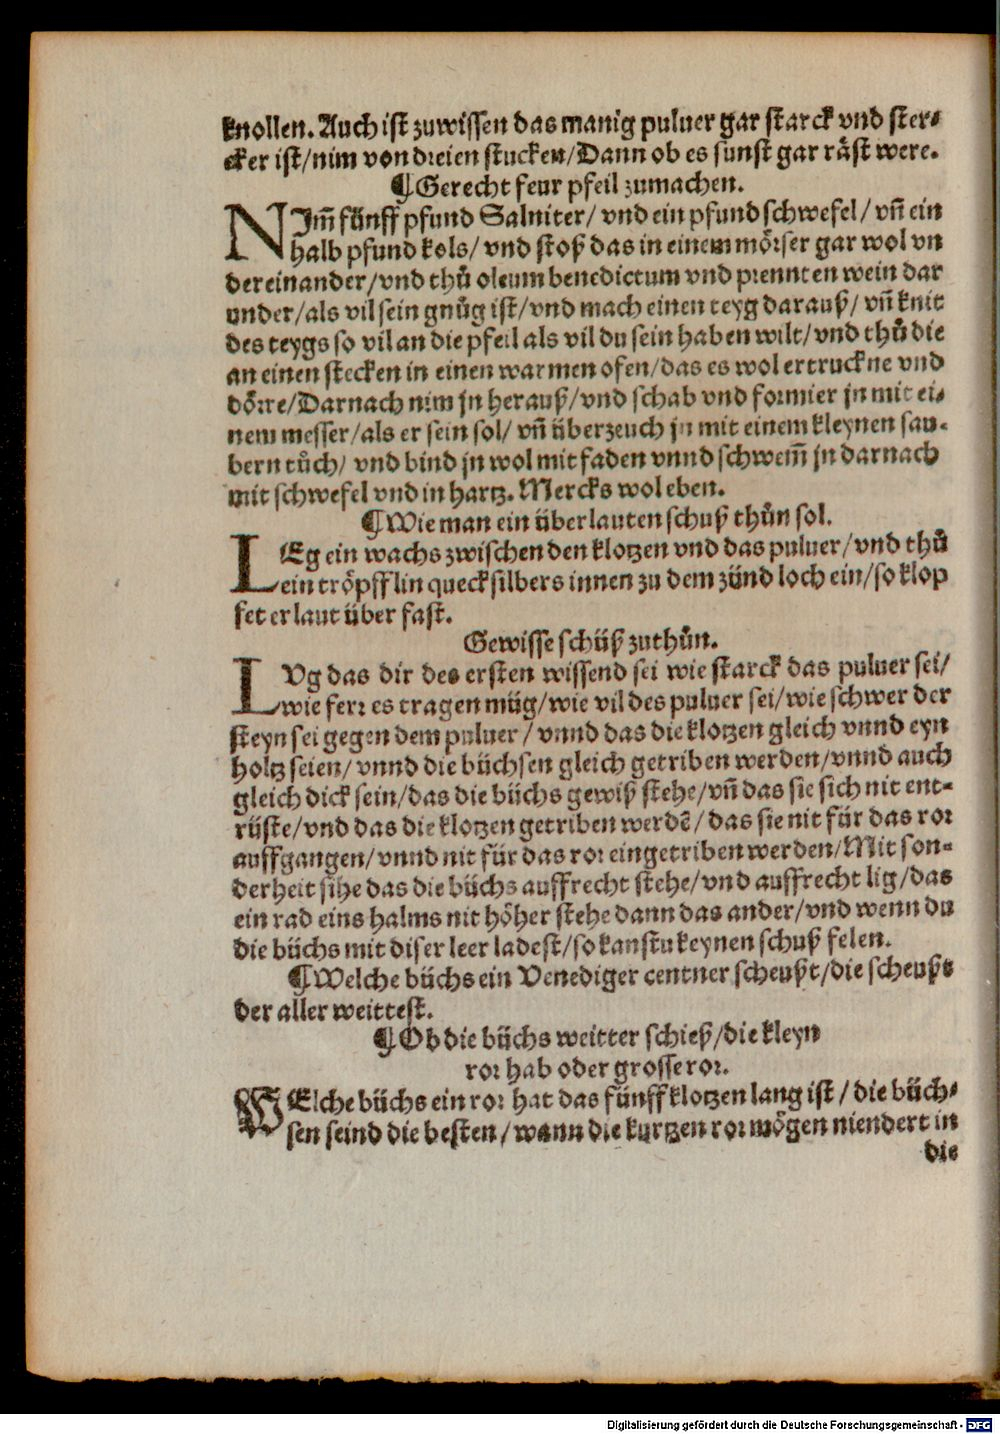 knollen. Auch ist zuwissen das manig puluer gar starck vnd ster⸗
cker ist/nim von dreien stucken/Dann ob es sunst gar räst were.
¶Gerecht feur pfeil zumachen.
NIm̃ fünff pfund Salniter/ vnd ein pfund schwefel/ vñ ein
halb pfund kols/ vnd stoß das in einem mörser gar wol vn
der einander/vnd thů oleum benedictum vnd prennten wein dar
vnder/als vil sein gnůg ist/vnd mach einen teyg darauß/ vñ knit
des teygs so vil an die pfeil als vil du sein haben wilt/vnd thů die
an einen stecken in einen warmen ofen/das es wol ertruckne vnd
dörre/Darnach nim jn herauß/vnd schab vnd formier jn mit ei⸗
nem messer/als er sein sol/ vñ überzeuch jn mit einem kleynen sau⸗
bern tůch/ vnd bind jn wol mit faden vnnd schwem̃ jn darnach
mit schwefel vnd in hartz. Mercks wol eben.
¶Wie man ein überlauten schuß thůn sol.
LEg ein wachs zwischen den klotzen vnd das puluer/vnd thů
ein tröpfflin quecksilbers innen zu dem zünd loch ein/so klop
fet er laut über fast.
Gewisse schüß zuthůn.
LVg das dir des ersten wissend sei wie starck das puluer sei/
wie ferr es tragen müg/wie vil des puluer sei/wie schwer der
steyn sei gegen dem puluer/ vnnd das die klotzen gleich vnnd eyn
holtz seien/vnnd die büchsen gleich getriben werden/vnnd auch
gleich dick sein/das die büchs gewiß stehe/vñ das sie sich nit ent⸗
rüste/vnd das die klotzen getriben werdẽ/das sie nit für das ror
auffgangen/vnnd nit für das ror eingetriben werden/Mit son⸗
derheit sihe das die büchs auffrecht stehe/vnd auffrecht lig/das
ein rad eins halms nit höher stehe dann das ander/vnd wenn du
die büchs mit diser leer ladest/so kanstu keynen schuß felen.
¶Welche büchs ein Venediger centner scheußt/die scheußt
der aller weittest.
¶Ob die büchs weitter schieß/die kleyn
ror hab oder grosse ror.
WElche büchs ein ror hat das fünff klotzen lang ist/die büch⸗
sen seind die besten/wann die kurtzen ror mögen niendert in
die
Digitalisierung gefördert durch die Deutsche Forschungsgemeinschaft - DFG